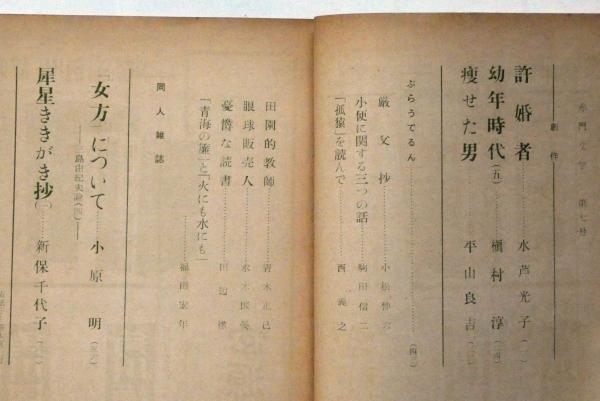 赤門文学 第七号
創作
許婚者 水芦光子
幼年時代(五) 槇村淳
痩せた男 平山良吉
ぷらうでるん (四)
厳父抄 小松伸六
小便に関する三つの話 駒田信二
「孤猿」を読んで 西義之
田園的教師 青木正己
眼球販売人
憂欝な読書 田辺
「青海の簾」と「火にも水にも」 福田宏年
同人雑誌
「女方」について 小原明
―三島由紀夫論(四)―
犀星ききがき抄(一) 新保千代子